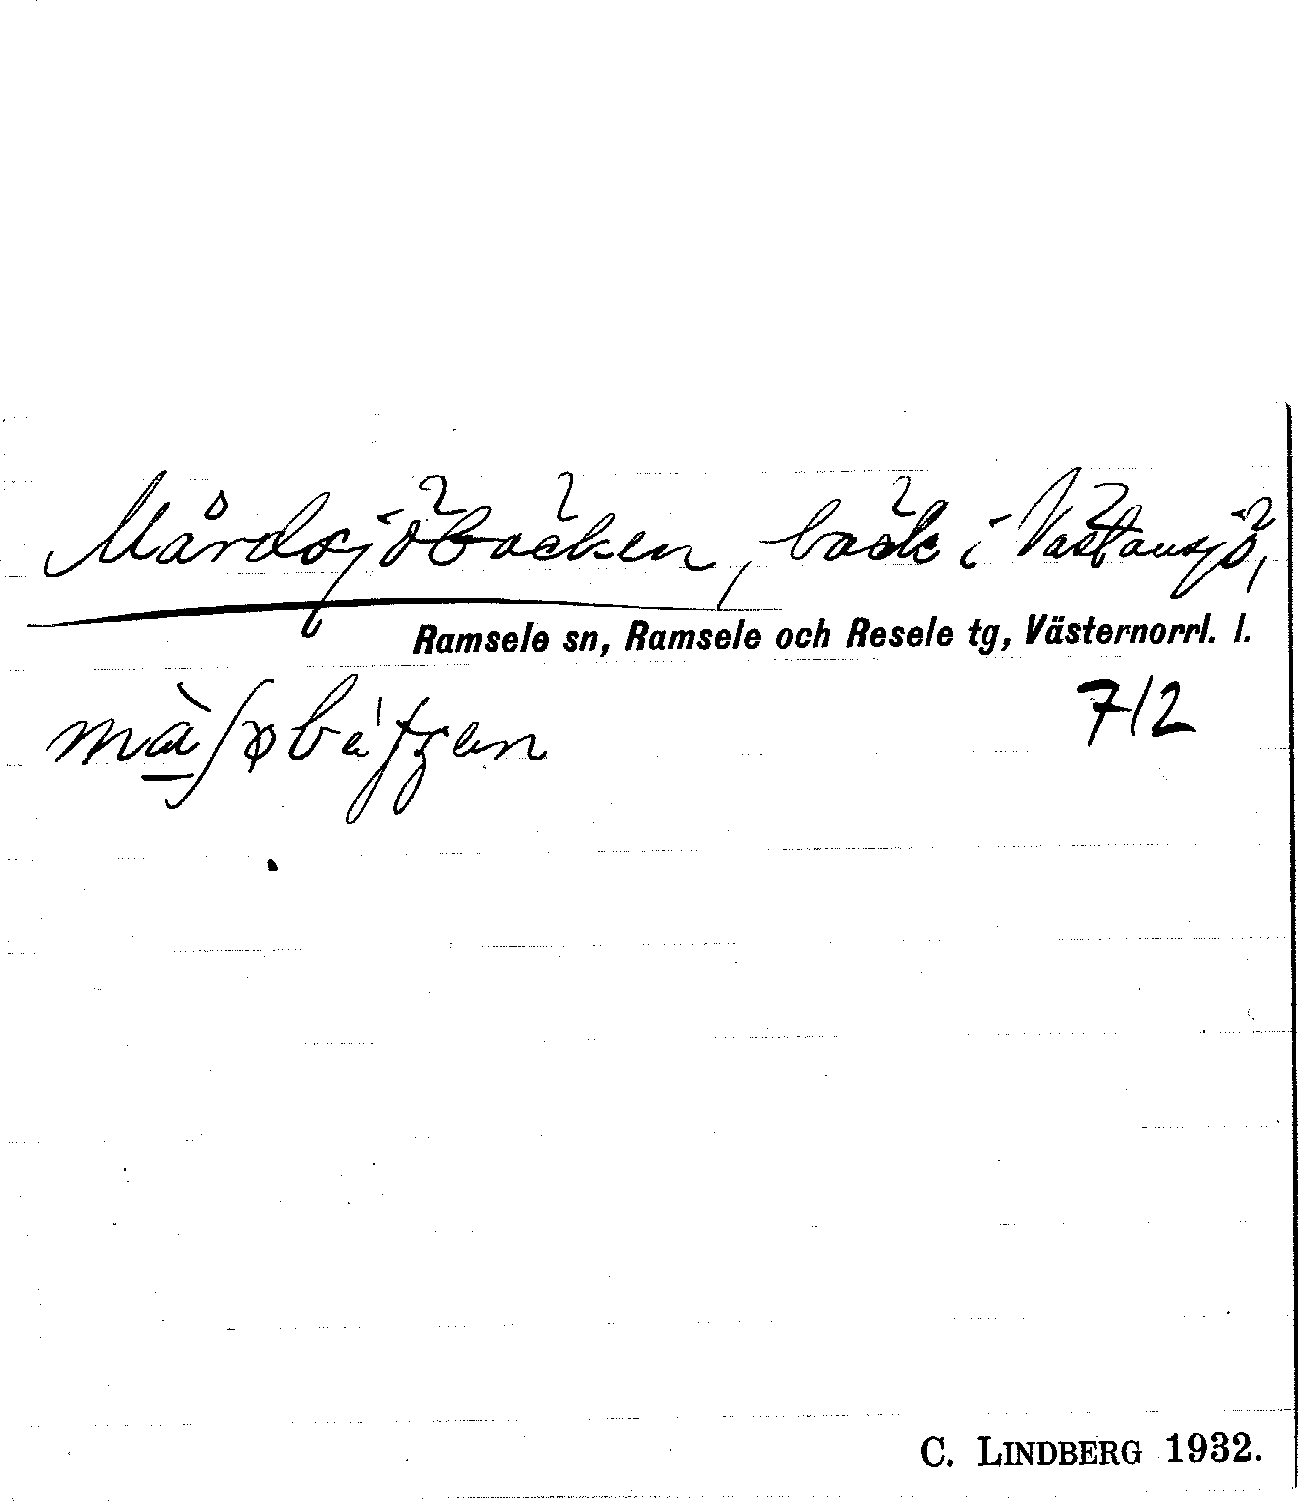 Mårdsjöbäcken, bäck i Västansjö,
Ramsele sn, Ramsele och Resele tg, Västernorrl. l.
712
C. LINDBERG 1932.